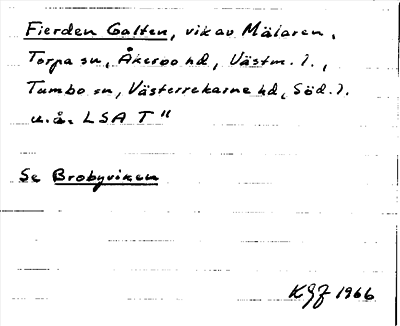 Fierden Galten, vik av Mälaren,
Torpa sn, Åkerbo hd, Västm. l.,
Tumbo sn, Västerrekarne hd, Söd. l.
u.å. LSA T"
Se Brobyviken
KGJ 1966